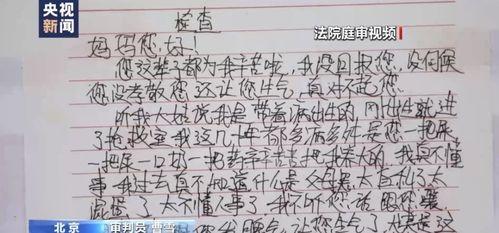 央视新闻
法院庭审视频
检查
妈妈您好！
您这辈子都为我辛苦啦，我没回报您，没伺候
您没孝敬您还让您生气真对不起您
听我大姑说我是带着病出生的，刚出生就进
了抢救室我这几十年都多病多灾是您一把尿
一把屎一口奶一把药辛辛苦苦把我养大的，我真不懂
事，我过去真不知道什么是父母恩，太自私了太
混蛋了，太不懂人事了，我不听您话
让您生气了
北京 审判员